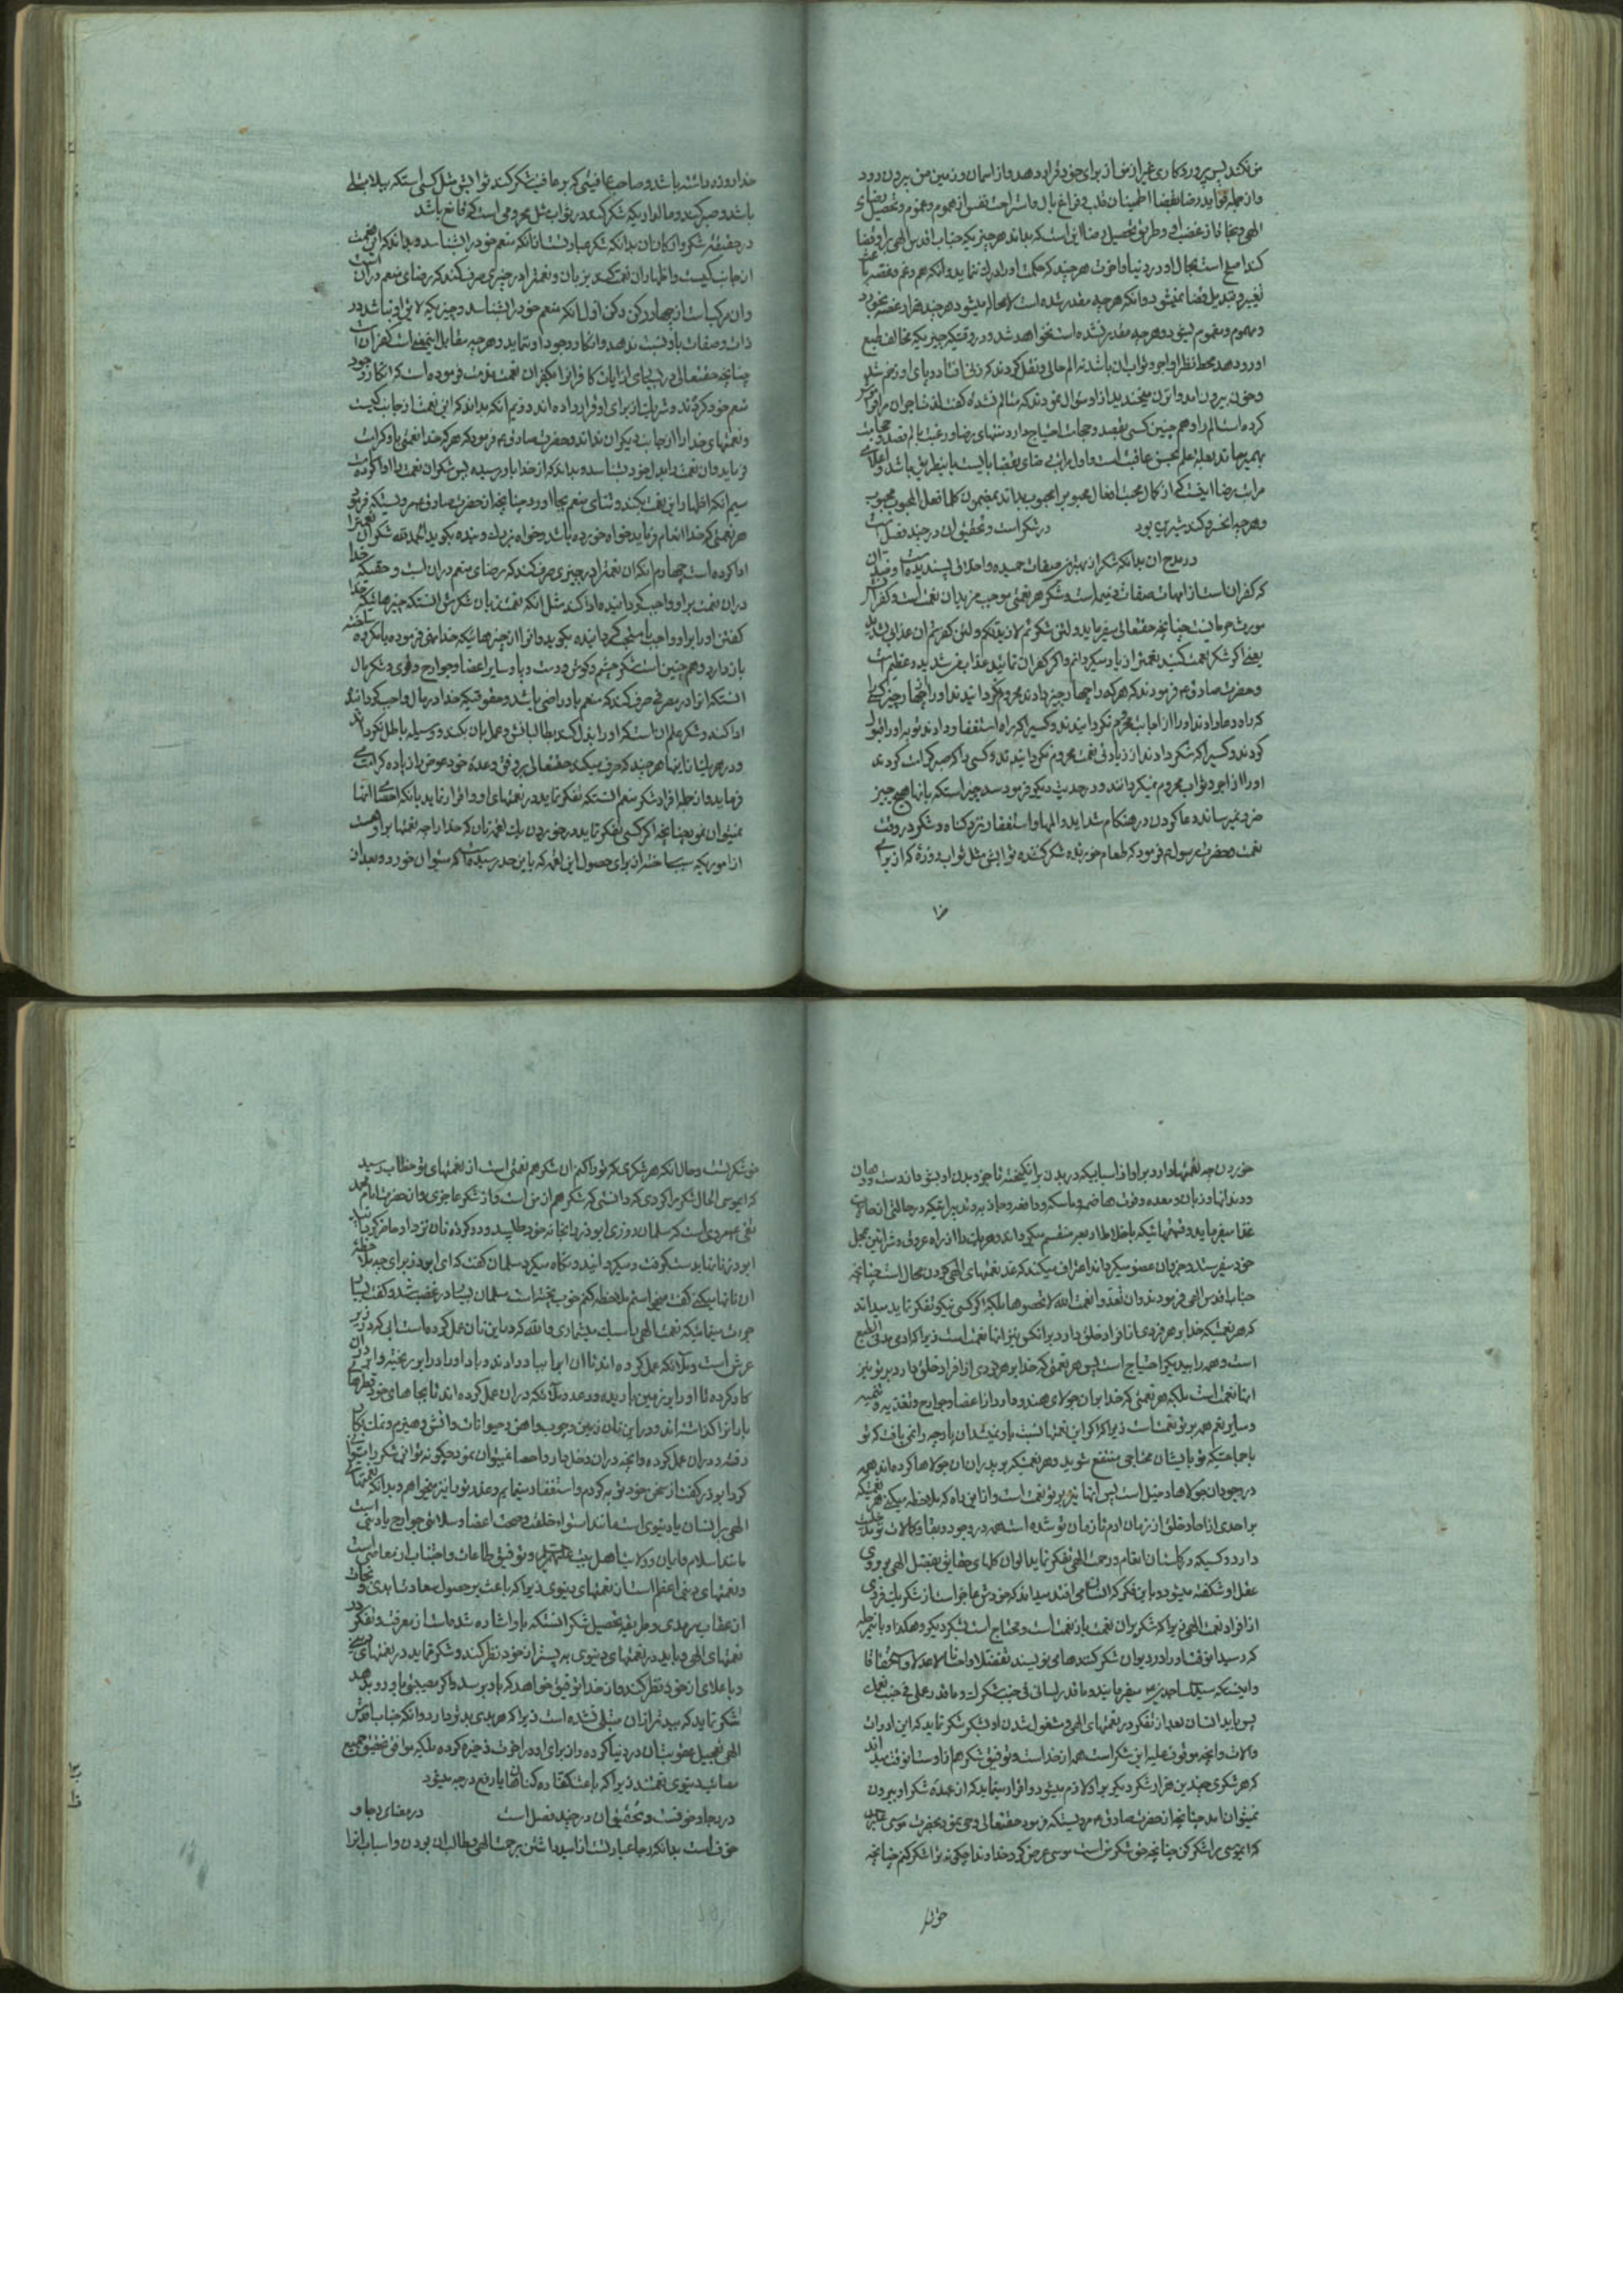 من نکند پس پروردکاری غیر از من از برای خود قرار دهد و از اسمان و زمین من بیرون رود
و از جمله فواید رضا بقضا اطمینان قلب و فراغ بال و استراحت نفس از هموم و غموم و تحصیل رضای
الهی و نجات از غضب او و طریق تحصیل رضا این است که بداند هر چیزیکه جناب اقدس الهی برای او قضا
کند اصلح است بحال او در دنیا و اخرت هر چند که حکمت او را درک ننماید و انکه هم و غم و غصه باعث
تغییر و تبدیل قضا نمیشود و انکه هر چه مقدر شده است لا محاله میشود هر چند هزار غصه بخورد
و مهموم و مغموم بشود و هر چه مقدر نشده است نخواهد شد و در وقتیکه چیزیکه مخالف طبع
او رو دهد محط نظر او اجر و ثواب ان باشد نه الم حالی و نقل کردند که زنی افتاد و پای او زخم شد
و خون بیرون امد و ان زن میخندید از او سوال نمودند که متالم نشده کفت لذت اجر ان مرا فراموش
کرده است الم را و هم چنین کسی بفصد و حجامت احتیاج دارد منتهای رضا و رغبت بالم فصد و حجامت
بهم میرساند بعلت علم بحسن عاقبت است و اول مراتب رضای بقضا بایست باینطریق باشد و اعلای
مراتب رضا اینست که از کمال محبت افعال محبوب را محبوب بداند بمضمون کلما فعل المحبوب محبوب
و هر چه انخسرو کند شیرین بود در شکر است و تحقیق ان در چند فصل است
در مدح ان بدانکه شکر از بهترین صفات حمیده و اخلاق پسندیده است و ضد ان
که کفران است از امهات صفات ذمیمه است و شکر هر نعمتی موجب مزید ان نعمت است و کفران
مورث حرمانست چنانچه حقتعالی میفرماید و لئن شکرتم لازیدنکم و لئن کفرتم ان عذابی لشدید
یعنی اکر شکر نعمت کنید نعمت را زیاد میکردانم و اکر کفران نمائید عذاب من شدید و عظیم است
و حضرت صادق ع م فرمودند که هر که را چهار چیز دادند محروم نکردانیدند او را از چهار چیز کسی
که راه دعا دادند او را از اجابت محروم نکردانیدند و کسیرا که راه استغفار دادند توبه او را قبول
کردند و کسیرا که شکر دادند از زیادتی نعمت محروم نکردانیدند و کسی را که صبر کرامت کردند
او را از اجر و ثواب محروم نمیکردانند و در حدیث دیکر فرمود سه چیز است که با انها هیچ چیز
ضرر نمیرساند دعا کردن در هنکام شداید و المها و استغفار نزد کناه و شکر در وقت
نعمت و حضرت رسول م فرمود که طعام خورنده شکر کننده ثوابش مثل ثواب روزه که از برای
خدا
خدا روزه داشته باشد و صاحب عافیتی که بر عافیت شکر کند ثوابش مثل کسی است که ببلا مبتلی
باشد و صبر کند و مالداریکه شکر کند در ثواب مثل محرومی است که قانع باشد
در حقیقة شکر و ارکان ان بدانکه شکر عبارتست از انکه منعم خود را بشناسد و بداند که این نعمت
از جانب کیست و اظهار ان نعمت کند بزبان و نعمت را در چیزی صرف کند که رضای منعم در ان است
و ان مرکب است از چهار رکن رکن اول انکه منعم خود را بشناسد و چیزیکه لایق او نباشد در
ذات و صفات باو نسبت ندهد و انکار وجود او ننماید و هر چه مقابل اینمعنی است کفران است
چنانچه حقتعالی در بسیاری از ایات کافران را بکفران نعمت مذمت فرموده است که انکار وجود
منعم خود کردند و شریک از برای او قرار داده اند دویم انکه بداند که این نعمت از جانب کیست
و نعمتهای خدا را از جانب دیکران نداند و حضرت صادق ع م فرمود که هر که خدا نعمتی باو کرامت
فرماید و ان نعمت را بدل خود بشناسد و بداند که از خدا باو رسیده پس شکر ان نعمت را ادا کرده است
سیم انکه اظهار این نعمت بکند و ثنای منعم بجا اورد چنانچه از حضرت صادق ع م مرویست که فرمود
هر نعمتی که خدا انعام فرماید خواه خورده باشد و خواه بزرک و بنده بکوید الحمد لله شکر ان نعمت را
ادا کرده است چهارم انکه ان نعمت را در چیزی صرف کند که رضای منعم در ان است و حقیکه خدا
در ان نعمت بر او واجب کردانیده ادا کند مثل انکه نعمت زبان شکرش انستکه چیزهائیکه خدا
کفتن او را بر او واجب یا مستحب کردانیده بکوید و انرا از چیزهائیکه خدا نهی فرموده یا مکروه ساخته
باز دارد و هم چنین است شکر چشم و کوش و دست و پا و سایر اعضا و جوارح و قوی و شکر مال
انستکه انرا در مصرفی صرف کند که منعم باو راضی باشد و حقوقیکه خدا در مال واجب کردانیده
ادا کند و شکر علم ان است که او را بذل کند بطالبانش و عمل بان بکند و وسیله باطل نکرداند
و در هر یک از اینها هر چند که صرف میکند حقتعالی بر وفق وعده خود عوض را زیاده کرامت
فرماید و از جمله افراد شکر منعم انستکه تفکر نماید در نعمتهای او و اقرار نماید بانکه احصای انها
نمیتوان نمود چنانچه اکر کسی تفکر نماید در خوردن یک لقمه نان که خدا را چه نعمتها بر او هست
از اموریکه ساخته از برای حصول این لقمه که باین حد رسیده است که میتوان خورد و بعد از
خوردن چه نعمتها دارد بر او از اسبابیکه در بدن برانکیخته تا جزو بدن او بشود مانند دست و دهان
و دندانها و زبان و معده و قوت هاضمه و ماسکه و دافعه و جاذبه و تدبیراتیکه در حالتی از حالات
غذا میفرماید و قسمتهائیکه باخلاط اربعه منقسم میکرداند و هر یک را از راه عروق و شرائین بمحل
خود میفرستد و جزو ان عضو میکرداند اعتراف میکند که عد نعمتهای الهی کردن محال است چنانچه
جناب اقدس الهی فرمودند و ان تعدوا نعمت الله لا تحصوها بلکه اکر کسی نیکو تفکر نماید میداند
که هر نعمتیکه خدا بر هر فردی از افراد خلق دارد بر این کس نیز انها نعمت است زیرا که ادمی مدنی الطبع
است و همه را بیکدیکر احتیاج است پس هر نعمتی که خدا بر هر فردی از افراد خلق دارد بر تو نیز
انها نعمت است بلکه هر نعمتی که خدا بر ان جولای هندو دارد از اعضا و جوارح و تغذیه و تنمیه
و سایر نعم همه بر تو نعمت است زیرا که اکر این نعمتها نسبت باو نمیشد ان پارچه را نمی یافت که تو
یا جماعتیکه تو بایشان محتاجی منتفع شوید و هر نعمتیکه بر پدران ان جولاها کرده اند همه
در وجود ان جولاها دخیل است پس انها نیز بر تو نعمت است و از این راه که ملاحظه میکنی هر نعمتیکه
بر احدی از احاد خلق از زمان ادم تا زمان تو شده است همه در وجود و بقا و کمالات تو مدخلیت
دارد و کسیکه در کلستان انعام و رحمت الهی تفکر نماید الوان کلهای حقایق بفضل الهی بر روی
عقل او شکفته میشود و باین فکر که انسان می افتد میداند که خودش عاجز است از شکر یک فردی
از افراد نعمت الهی زیرا که شکر بر ان نعمت باز نعمت است و محتاج است بشکر دیکر و هکذا و باینمرحله
که رسید انوقت او را در دیوان شکر کنندها می نویسند تفضلا و احسانا لا عدلا و استحقاقا
و اینست که سید الساجدین ع م میفرمایند و ما قدر لسانی فی جنب شکرک و ما قدر عملی فی جنب نعمک
پس باید انسان بعد از تفکر در نعمتهای الهی و مشغول شدن او بشکر شکر نماید که این ادوات
و الات و انچه موقوف علیه این شکر است همه از خداست و توفیق شکر هم از اوست انوقت میداند
که هر شکری چندین هزار شکر دیکر بر او لازم میشود و اقرار مینماید که از عهده شکر او بیرون
نمیتوان امد چنانچه از حضرت صادق ع م مرویستکه فرمود حقتعالی وحی نمود بحضرت موسی علیه السلام
که ایموسی مرا شکر کن چنانچه حق شکر من است موسی عرض کرد خداوندا چکونه تو را شکر کنم چنانچه
حق شکر
حق شکر تست و حال انکه هر شکری که تو را کنم ان شکر هم نعمتی است از نعمتهای تو خطاب رسید
که ایموسی الحال شکر مرا کردی که دانستی که شکر هم از من است و از شکر عاجزی و از حضرت امام محمد
تقی ع م مرویست که سلمان روزی ابوذر را بخانه خود طلبید و دو کرده نان نزد او حاضر کرد
ابوذر نانها را بدست کرفت و میکردانید و نکاه میکرد سلمان کفت که ای ابوذر برای چه ملاحظه
ان نانها میکنی کفت میخواستم ملاحظه کنم خوب پخته است سلمان بسیار در غضب شد و کفت بسیار
جرات مینمائیکه نعمت الهی را سبک میشماری والله که در این نان عمل کرده است ابی که در زیر
عرش است و ملائکه عمل کرده اند تا ان اب را بباد دادند و باد او را در ابر ریخته و ابر در ان
کار کرده تا او را بر زمین باریده و رعد و ملائکه در ان عمل کرده اند تا بجاهای خود قطرهای
بارانرا کذاشته اند و در این نان زمین و چوب و اهن و حیوانات و اتش و هیزم و نمک بکار
رفته و در ان عمل کرده و انچه در ان دخل دارد احصا نمیتوان نمود چکونه توانی شکر را بتوانی
کرد ابوذر کفت از سخن خود توبه کردم و استغفار مینمایم و عذر تو را نیز میخواهم و بدانکه نعمتهای
الهی بر انسان یا دنیوی است مانند استواء خلقت و صحت اعضا و سلامتی جوارح یا دینی است
مانند اسلام و ایمان و ولایت اهل بیت علیهم السلام و توفیق طاعات و اجتناب از معاصی است
و نعمتهای دینی اعظم است از نعمتهای دنیوی زیرا که باعث بر حصول سعادت ابدی و نجات
از عقاب سرمدی و طریقه تحصیل شکر انستکه باو اشاره شده است از معرفت و تفکر در
نعمتهای الهی و باید در نعمتهای دنیوی به پست تر از خود نظر کند و شکر نماید و در نعمتهای دینی
باعلای از خود نظر کند و از خدا توفیق خواهد که باو برسد و اکر مصیبتی باو رو بدهد
شکر نماید که ببدتر از ان مبتلی نشده است زیرا که هر بدی بدتر دارد و انکه جناب اقدس
الهی تعجیل عقوبت ان در دنیا کرده و از برای او در اخرت ذخیره کرده بلکه موافق تحقیق جمیع
مصائب دنیوی نعمتند زیرا که باعث کفاره کناهان یا رفع درجه میشود
در رجا و خوفست و تحقیق ان در چند فصل است در معنای رجا و
خوف است بدانکه رجا عبارتست از امید داشتن برحمت الهی و طالب ان بودن و اسباب انرا